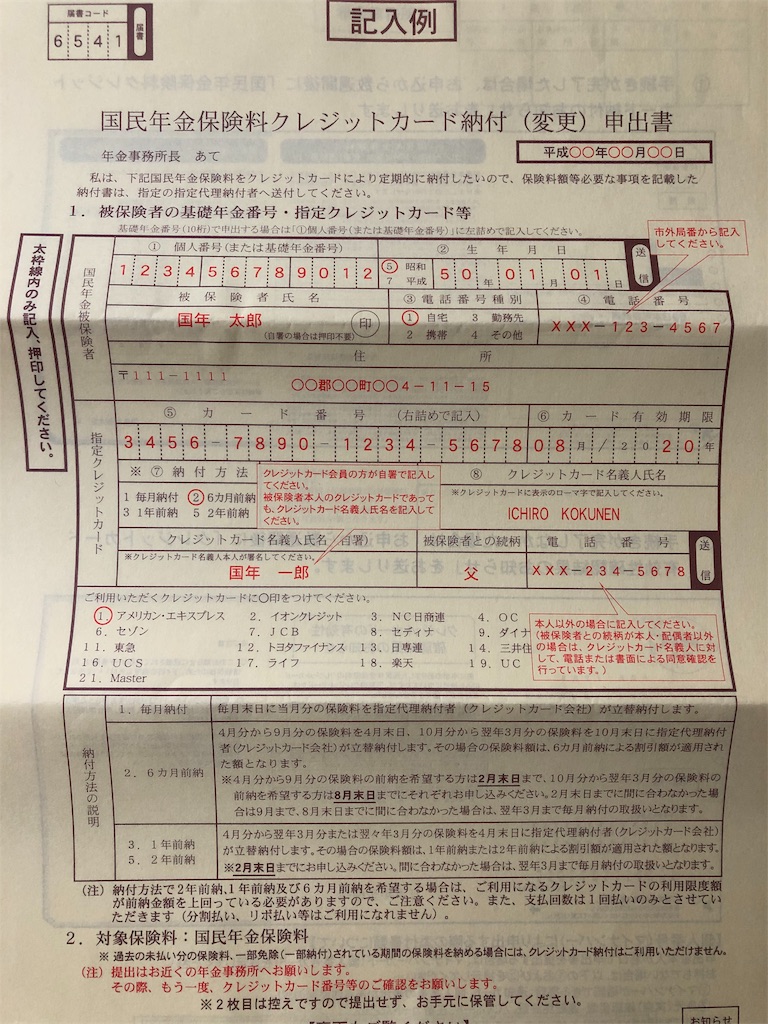 届書コード
6541
届書
記入例
国民年金保険料クレジットカード納付（変更）申出書
年金事務所長 あて
平成〇〇年〇〇月〇〇日
私は、下記国民年金保険料をクレジットカードにより定期的に納付したいので、保険料額等必要な事項を記載した
納付書は、指定の指定代理納付者へ送付してください。
1. 被保険者の基礎年金番号・指定クレジットカード等
基礎年金番号(10桁)で申出する場合は「①個人番号(または基礎年金番号)」に左詰めで記入してください。
市外局番から記入
してください。
太枠線内のみ記入、押印してください。
国民年金被保険者
① 個人番号(または基礎年金番号)
② 生年月日
送信
123456789012
5 昭和
7 平成
50年01月01日
被保険者氏名
③ 電話番号種別
④ 電話番号
国年 太郎
印
(自署の場合は押印不要)
1 自宅 3 勤務先
2 携帯 4 その他
XXX-123-4567
住所
〒111-1111
〇〇郡〇〇町〇〇4-11-15
指定クレジットカード
⑤ カード番号 (右詰めで記入)
⑥ カード有効期限
3456-7890-1234-5678
08月/2020年
※⑦ 納付方法
1 毎月納付 2 6カ月前納
3 1年前納 5 2年前納
クレジットカード会員の方が自署で記入し
てください。
被保険者本人のクレジットカードであって
も、クレジットカード名義人氏名を記入してく
ださい。
⑧ クレジットカード名義人氏名
※クレジットカードに表示のローマ字で記入してください。
ICHIRO KOKUNEN
クレジットカード名義人氏名(自署)
※クレジットカード名義人本人が署名してください。
国年 一郎
被保険者との続柄
父
電話番号
XXX-234-5678
送信
ご利用いただくクレジットカードに〇印をつけてください。
1. アメリカン・エキスプレス 2. イオンクレジット 3. NC日商連 4. OC
6. セゾン 7. JCB 8. セディナ 9. ダイナ
11. 東急 12. トヨタファイナンス 13. 日専連 14. 三井住
16. UCS 17. ライフ 18. 楽天 19. UC
21. Master
本人以外の場合に記入してください。
(被保険者との続柄が本人・配偶者以外
の場合は、クレジットカード名義人に対
して、電話または書面による同意確認を
行っています。)
納付方法の説明
1. 毎月納付
毎月末日に当月分の保険料を指定代理納付者（クレジットカード会社）が立替納付します。
2. 6カ月前納
4月分から9月分の保険料を4月末日、10月分から翌年3月分の保険料を10月末日に指定代理納付
者（クレジットカード会社）が立替納付します。その場合の保険料額は、6カ月前納による割引額が適用され
た額となります。
※4月分から9月分の保険料の前納を希望する方は2月末日まで、10月分から翌年3月分の保険料の
前納を希望する方は8月末日までにそれぞれお申し込みください。2月末日までに間に合わなかった場合
は9月まで、8月末日までに間に合わなかった場合は、翌年3月まで毎月納付の取扱いとなります。
3. 1年前納
5. 2年前納
4月分から翌年3月分または翌々年3月分の保険料を4月末日に指定代理納付者（クレジットカード会社）
が立替納付します。その場合の保険料額は、1年前納または2年前納による割引額が適用された額となります。
※2月末日までにお申し込みください。間に合わなかった場合は、翌年3月まで毎月納付の取扱いとなります。
（注） 納付方法で2年前納、1年前納及び6カ月前納を希望する場合は、ご利用になるクレジットカードの利用限度額
が前納金額を上回っている必要がありますので、ご注意ください。また、支払回数は1回払いのみとさせてい
ただきます（分割払い、リボ払い等はご利用になれません）。
2. 対象保険料：国民年金保険料
※ 過去の未払い分の保険料、一部免除（一部納付）されている期間の保険料を納める場合には、クレジットカード納付はご利用いただけません。
（注） 提出はお近くの年金事務所へお願いします。
その際、もう一度、クレジットカード番号等のご確認をお願いします。
※2枚目は控えですので提出せず、お手元に保管してください。
お知らせ